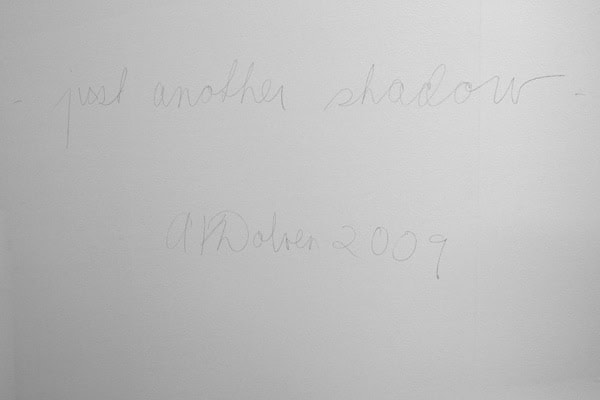 - just another shadow -
A K Dolven 2009